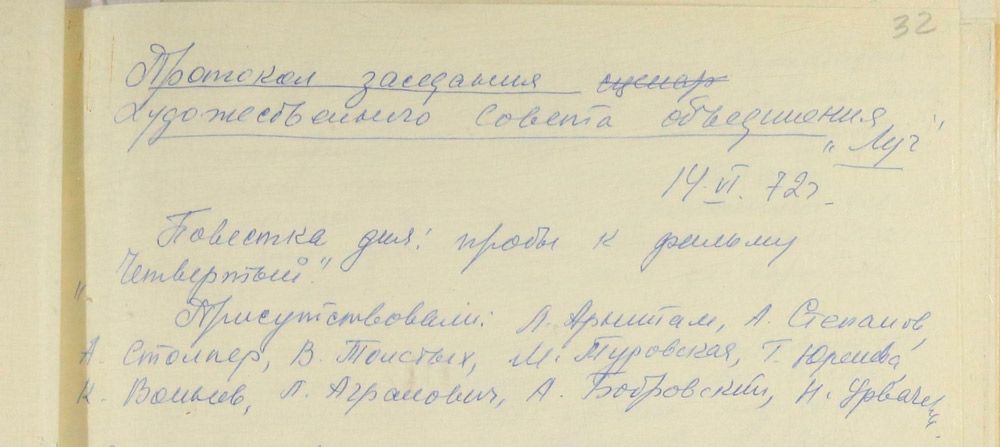 32
Протокол заседания сценар
Художественного Совета объединения
"Луч"
14.VI.72г.
Повестка дня: пробы к фильму
"Четвертый".
Присутствовали: Л. Арнштам, А. Степанов,
А. Столпер, В. Толстых, М. Туровская, Т. Юренева,
К. Воинов, Л. Агранович, А. Бобровский, Н.